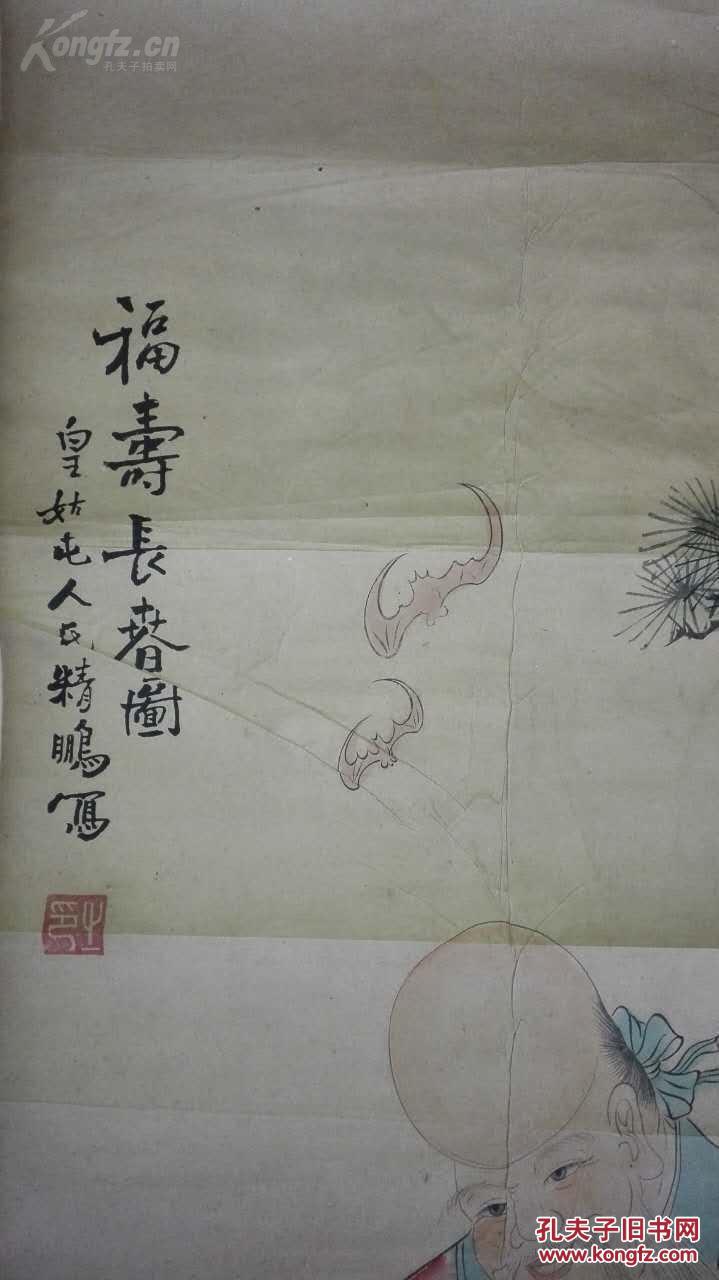 Kongfz.cn
孔夫子拍卖网
福壽長春圖
皇姑屯人氏精鵬寫
孔夫子旧书网
www.kongfz.com